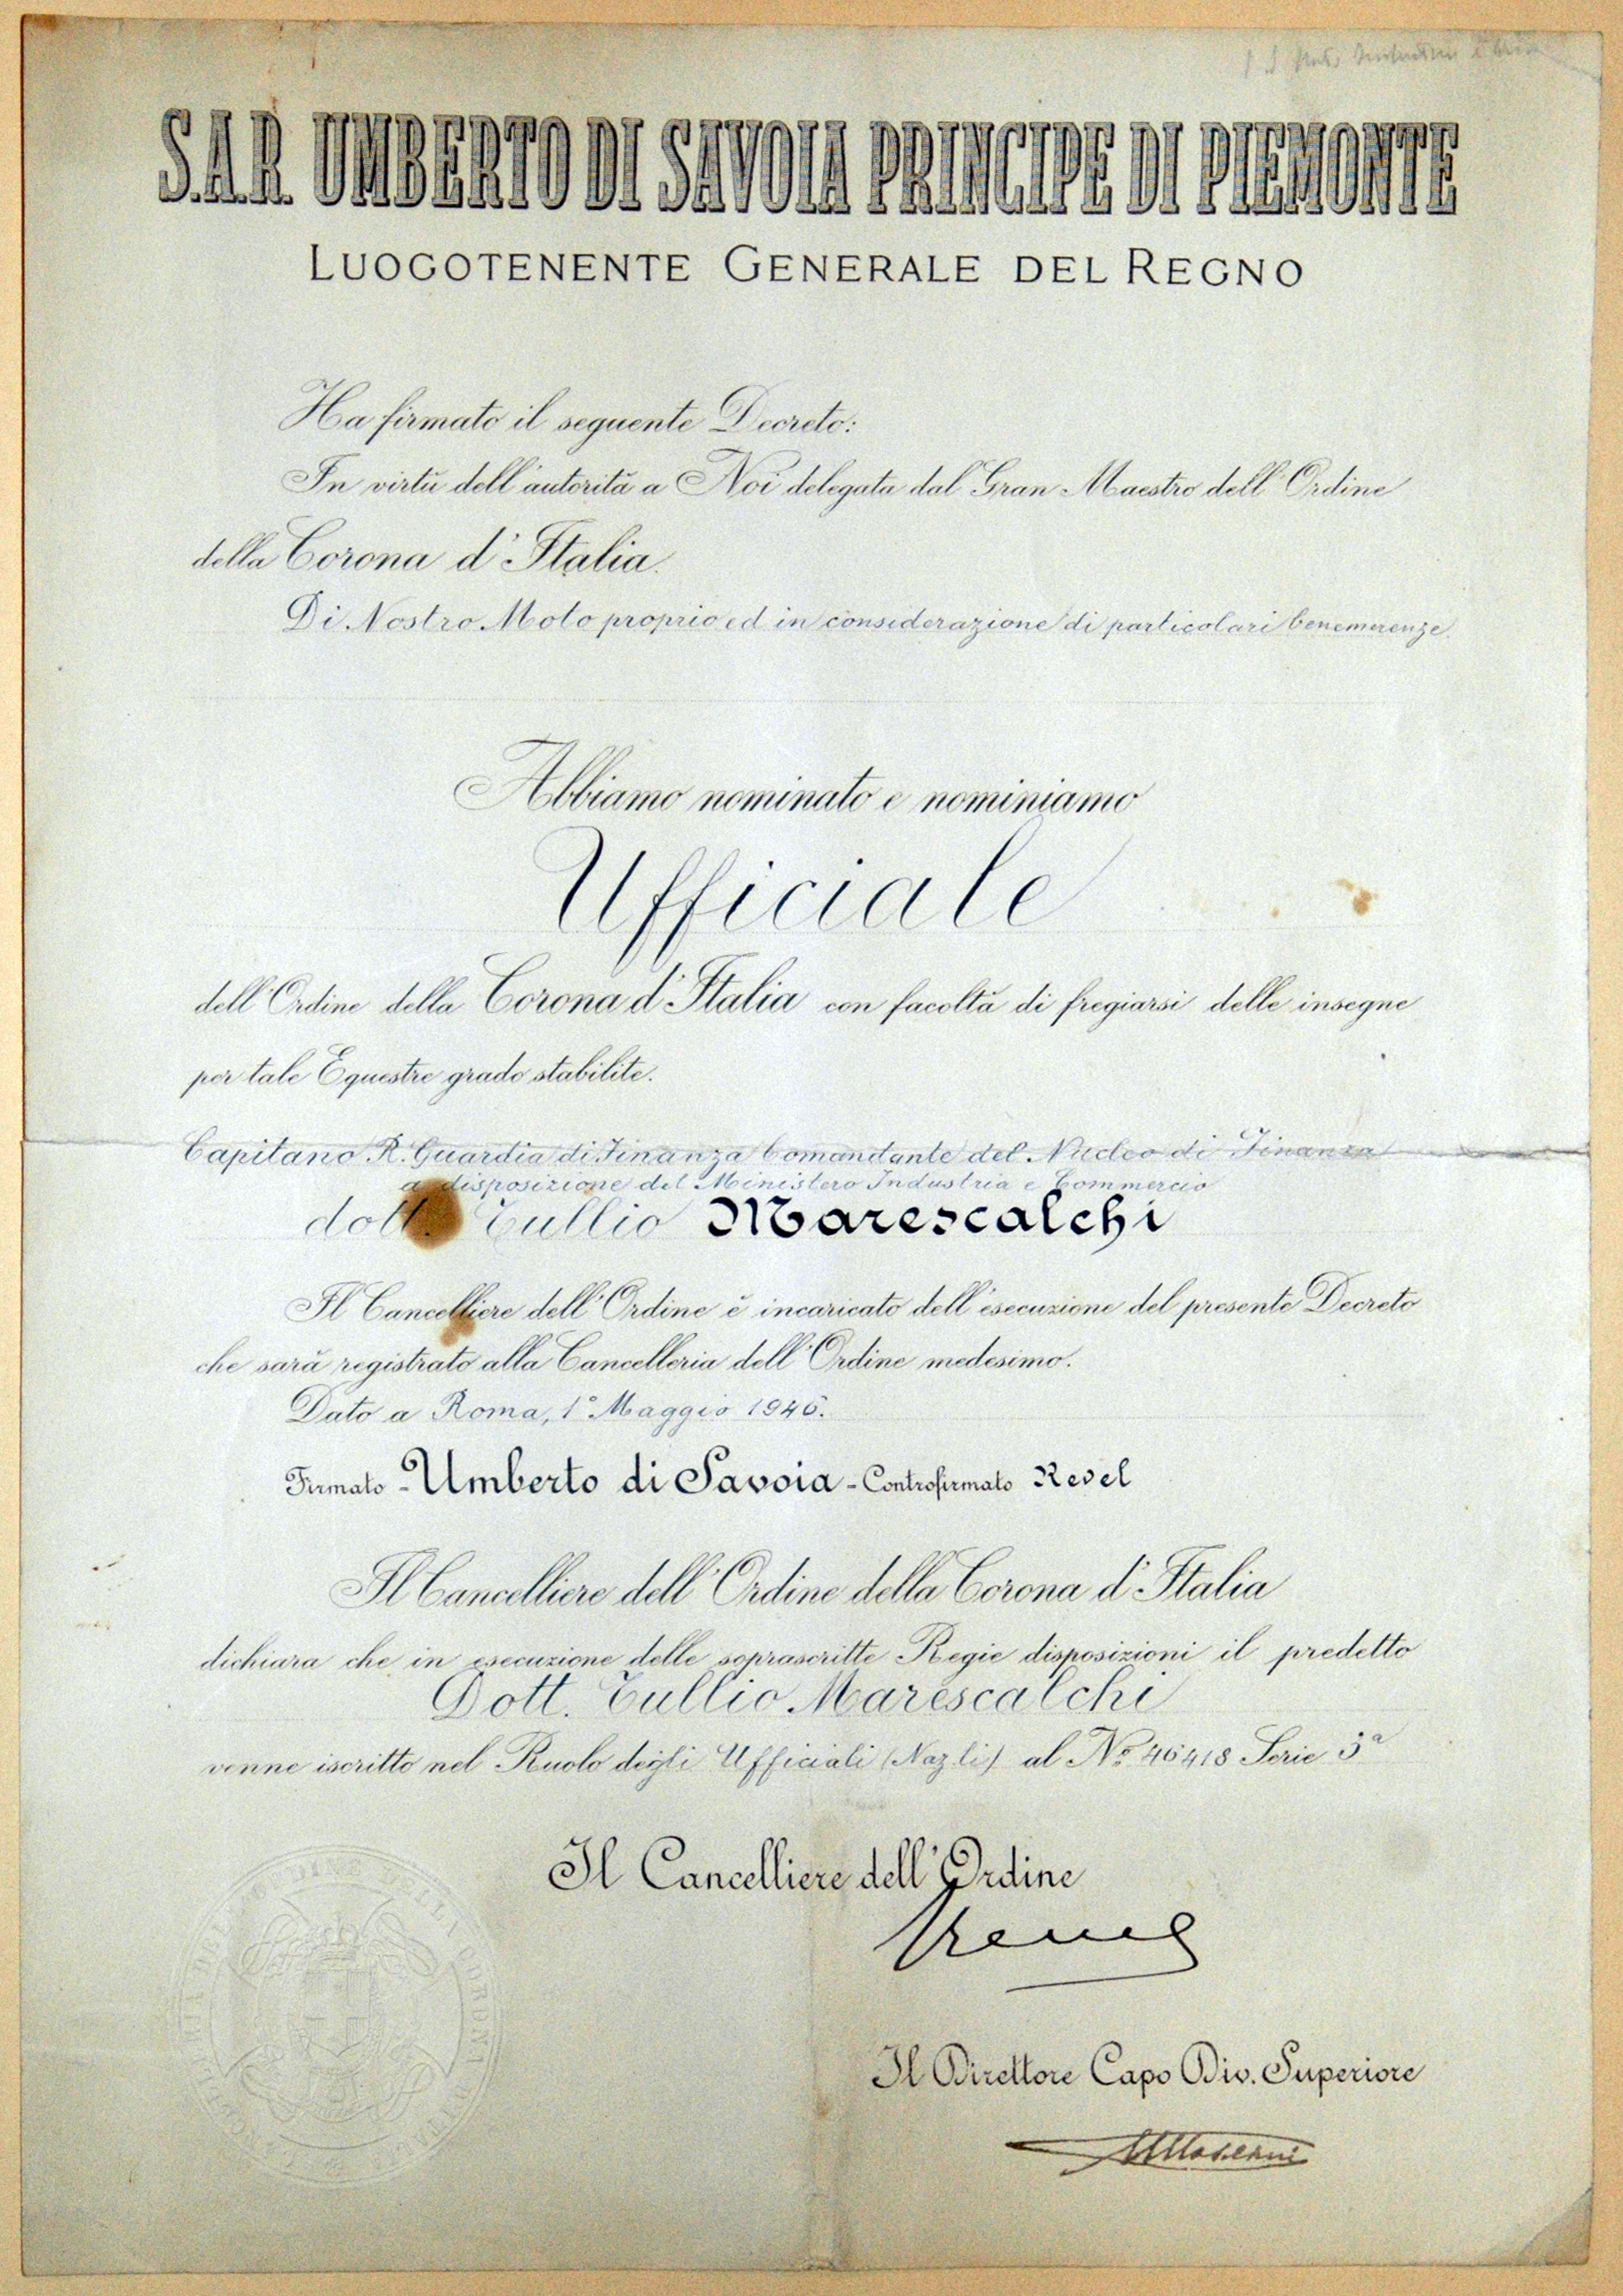 S.A.R. UMBERTO DI SAVOIA PRINCIPE DI PIEMONTE
LUOGOTENENTE GENERALE DEL REGNO
Ha firmato il seguente Decreto:
In virtù dell'autorità a Noi delegata dal Gran Maestro dell'Ordine
della Corona d'Italia.
Di Nostro Moto proprio ed in considerazione di particolari benemerenze.
Abbiamo nominato e nominiamo
Ufficiale
dell'Ordine della Corona d'Italia con facoltà di fregiarsi delle insegne
per tale Equestre grado stabilite.
Capitano R. Guardia di Finanza Comandante del Nucleo di Finanza
a disposizione del Ministero Industria e Commercio
dott. Tullio Marescalchi
Il Cancelliere dell'Ordine è incaricato dell'esecuzione del presente Decreto
che sarà registrato alla Cancelleria dell'Ordine medesimo.
Dato a Roma, 1° Maggio 1946.
Firmato - Umberto di Savoia - Controfirmato Revel
Il Cancelliere dell'Ordine della Corona d'Italia
dichiara che in esecuzione delle soprascritte Regie disposizioni il predetto
Dott. Tullio Marescalchi
venne iscritto nel Ruolo degli Ufficiali (Naz.li) al N° 46418 Serie 3ª
Il Cancelliere dell'Ordine
Il Direttore Capo Div. Superiore